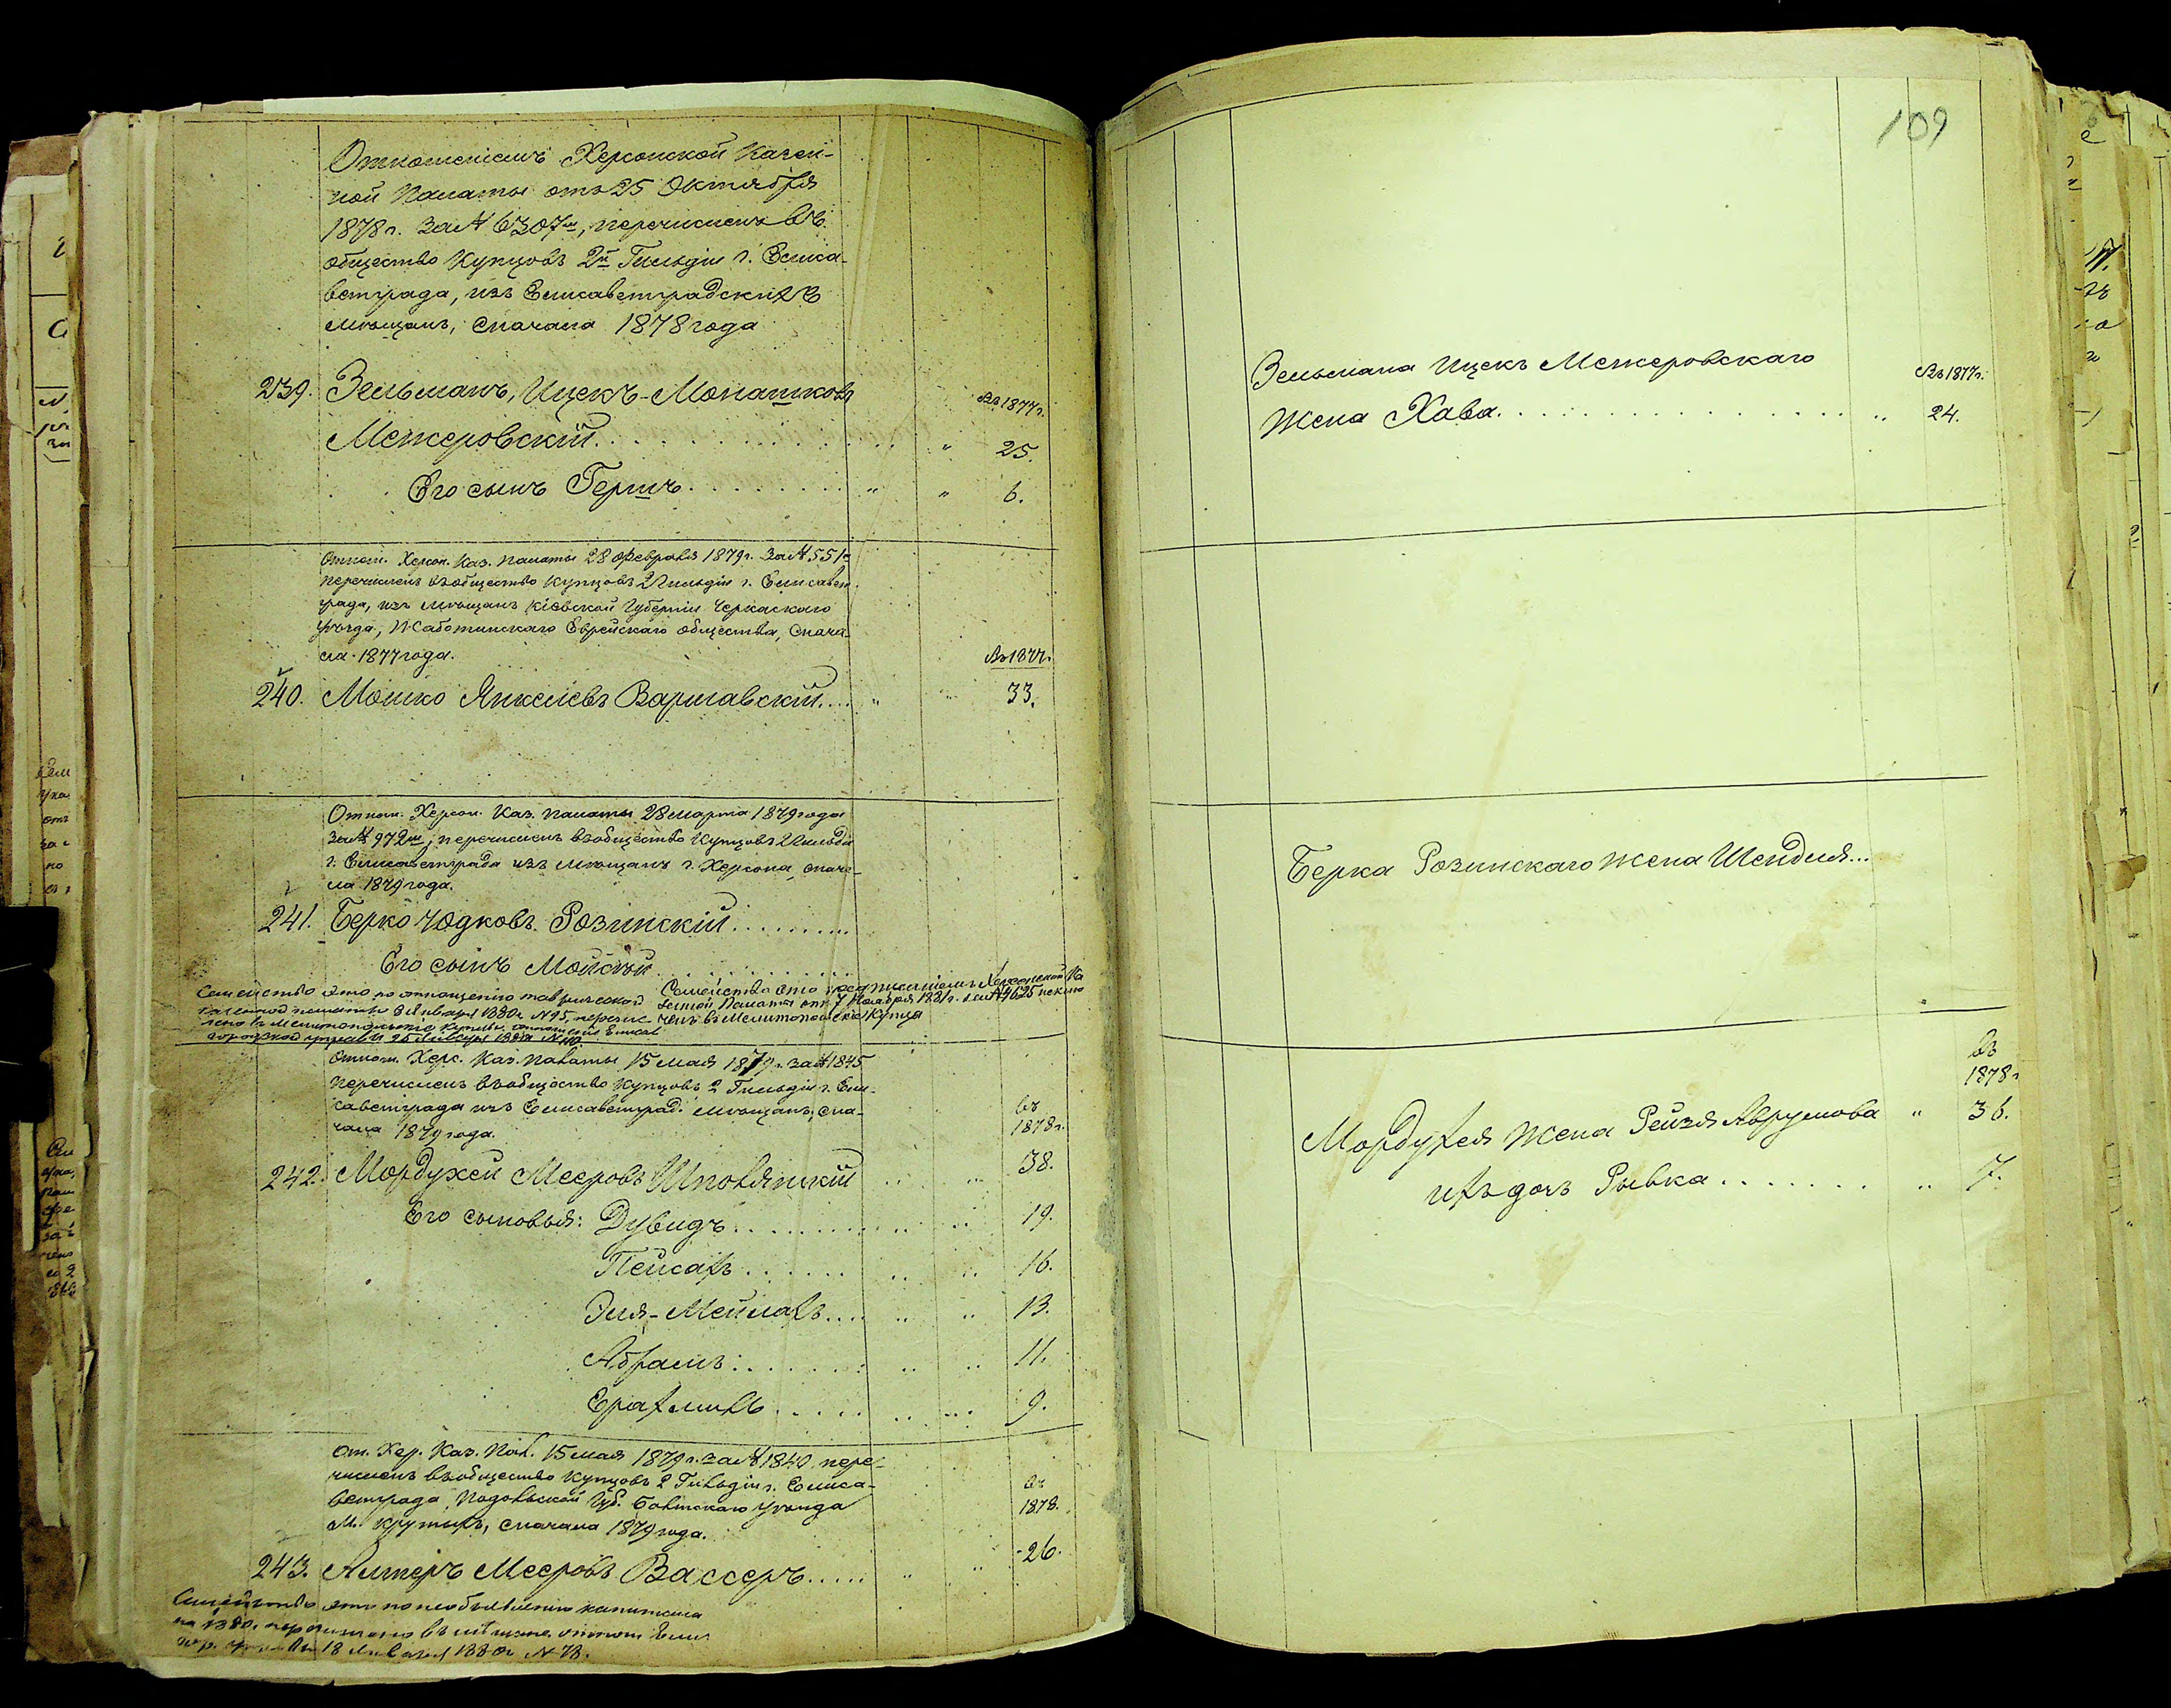 Отношеніемъ Херсонской Казен-
ной Палаты отъ 25 Октября
1878 г. за № 6307м, перечисленъ въ
общество Купцовъ 2й Гильдіи г. Елиса-
ветграда, изъ Елисаветградскихъ
мѣщанъ, сначала 1878 года
Въ 1877 г.
239. Зельманъ, Ицекъ-Монашковъ
Межеровскій . . . . . . " 25.
Его сынъ Гершъ . . . . . . " " 6.
Отнош. Херсон. Каз. Палаты 28 февраля 1879 г. за № 551м
перечисленъ въ общество купцовъ 2 Гильдіи г. Елисавет-
града, изъ мѣщанъ Кіевской Губерніи Черкаскаго
уѣзда, Жаботинскаго Еврейскаго общества, снача-
ла 1877 года.
Въ 1877 г.
240. Мошко Янкелевъ Варшавскій . . . . " " 33.
Отнош. Херсон. Каз. Палаты 28 марта 1879 года
за № 972м, перечисленъ въ общество Купцовъ 2 Гильдіи
г. Елисаветграда изъ мѣщанъ г. Херсона, снача-
ла 1879 года.
241. Берко Юдковъ Розинскій . . . . . . . . .
Его сынъ Мойсей . . . . . . . . . .
Семейство это по отношенію таврической
казенной палаты 8 Января 1880 г. № 95, перечис
лено въ Мелитопольскіе купцы. отношеніе Елисав
городской управы 26 Января 1880 г. №
Семейство это предписаніемъ Херсонской Ка
зенной Палаты отъ 7 Ноября 1881 г. за № 4625
въ Мелитопольскіе Купцы
Отнош. Херс. Каз. Палаты 15 мая 1879 г. за № 1845
перечисленъ въ общество Купцовъ 2 Гильдіи г. Ели-
саветграда изъ Елисаветград. мѣщанъ, сна-
чала 1879 года.
въ
1878 г.
242. Мордухей Мееровъ Шполянскій . . . . 38.
Его сыновья: Дувидъ . . . . . . . . 19.
Пейсахъ . . . . . . . . 16.
Эля-Мейлахъ . . . . . . 13.
Абрамъ . . . . . . . . 11.
Ерахмиль . . . . . . . . 9.
От. Хер. Каз. Пал. 15 мая 1879 г. за № 1840 пере-
численъ въ общество Купцовъ 2 Гильдіи г. Елиса-
ветграда, Подольской Губ. Балтскаго уѣзда
м. Крутыхъ, сначала 1879 года.
въ
1878.
243. Алтеръ Мееровъ Вассеръ . . . . . " " 26.
Семейство это по необъявленію капитала
на 1880 г. перечислено въ мѣщане отнош Елис.
гор. управы 18 Января 1880 г. № 73.
109
Зельмана Ицекъ Межеровскаго
Въ 1877 г.
жена Хава . . . . . . . . . . . . " 24.
Берка Розинскаго жена Шендля...
въ
1878 г
Мордухея жена Рейзя Аврумова " 36.
ихъ дочь Рывка . . . . . . . " 7.